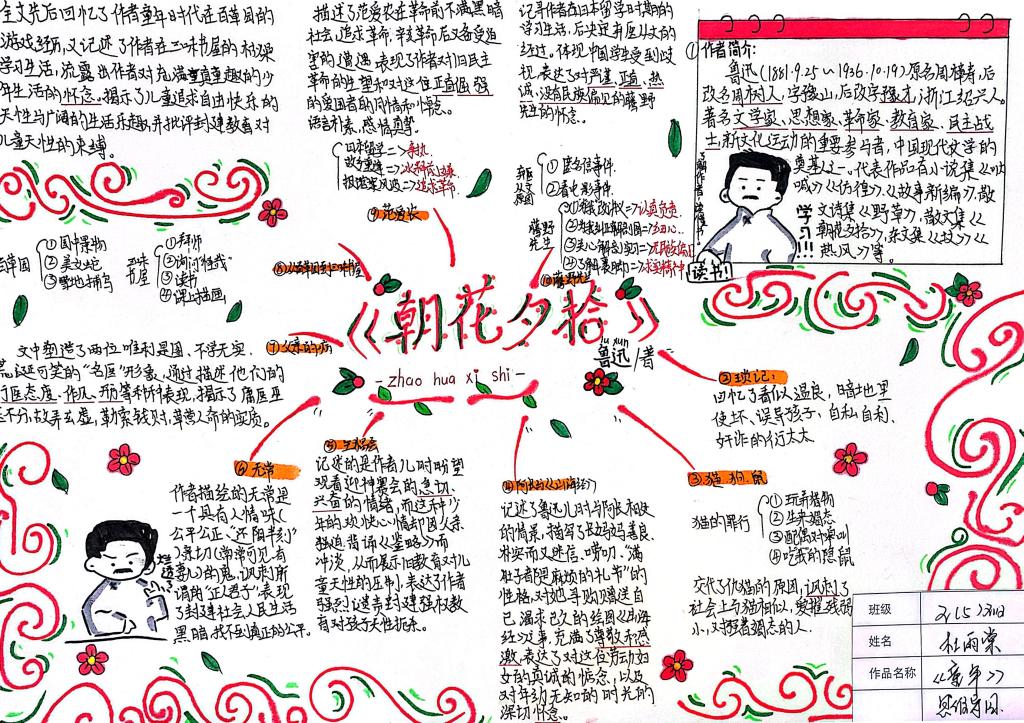 全文先后回忆了作者童年时代在百草园的
游戏经历,又记述了作者在三味书屋的
学习生活,流露出作者对充满童真童趣的少
年生活的怀念。揭示了儿童追求自由快乐的
天性与广阔的生活乐趣,并批评封建教育对
儿童天性的束缚。
描述了范爱农在革命前不满黑暗
社会,追求革命,辛亥革命后又备受迫
害的遭遇,表现了作者对旧民主
革命的失望和对这位正直倔强
的爱国者的同情和悼念。
语言朴素,感情真挚。
记录作者在日本留学时期的
学习生活,后决定弃医从文的
经过。体现中国学生受到歧
视,表达了对严谨,正直,热
诚,没有民族偏见的藤野
先生的怀念。
①作者简介:
鲁迅(1881.9.25~1936.10.19)原名周樟寿,后
改名周树人,字豫山,后改字豫才,浙江绍兴人。
著名文学家、思想家、革命家、教育家、民主战
士,新文化运动的重要参与者,中国现代文学的
奠基人之一。代表作品有小说集《呐
喊》《彷徨》《故事新编》,散
文诗集《野草》,散文集《
朝花夕拾》,杂文集《坟》《
热风》等。
学习!!!
读书!
日本留学=>
故乡重逢=>
报馆案风波=>追求革命
⑨范爱农
弃医从文原因
①匿名信事件
②看电影事件
藤野先生
①
②
③关心解剖实习=>
④了解裹脚=>求实精神
⑩藤野先生
⑧从百草园到三味书屋
百草园
①园中景物
②美女蛇
③雪地捕鸟
三味书屋
①拜师
②询问"怪哉"
③读书
④课上描画
《朝花夕拾》
-zhao hua xi shi-
lu xun
鲁迅/著
⑦父亲的病
文中塑造了两位唯利是图、不学无实、
荒诞可笑的"名医"形象,通过描述他们的
行医态度、作风、开方等种种表现,揭示了庸医巫
医不分,故弄玄虚,勒索钱财,草菅人命的实质。
②琐记:
回忆了看似温良,暗地里
使坏、误导孩子、自私自利、
奸诈的衍太太
⑥无常
作者描绘的无常是
一个具有人情味(
公平公正、"还阳半刻"
)亲切(常常可见,有
)的鬼,讽刺所
谓的"正人君子"表现
了封建社会人民生活
黑暗,找不到真正的公平。
⑤五猖会
记述的是作者儿时盼望
观看迎神赛会的急切、
兴奋的情绪,而这种少
年的欢快心情却因父亲
强迫背诵《鉴略》而
冲淡,从而展示旧教育对儿
童天性的压制,表达了作者
强烈谴责封建强权教
育对孩子天性扼杀。
④阿长与《山海经》
记述了鲁迅儿时与阿长相处
的情景,描写了长妈妈善良、
朴实而又迷信、唠叨、"满
肚子都是麻烦的礼节"的
性格,对她寻购赠送自
己渴求已久的绘图《山海
经》之事,充满了尊敬和感
激,表达了对这位劳动妇
女的真诚的怀念,以及
对年幼无知的时光的
深切怀念。
③狗.猫.鼠
猫的罪行
①玩弄猎物
②生来媚态
③配偶时嗥叫
④吃我的隐鼠
交代了仇猫的原因,讽刺了
社会上与猫相似,
小,对强者媚态的人。
班级
姓名
杜雨棠
作品名称
《童年》
思维导图